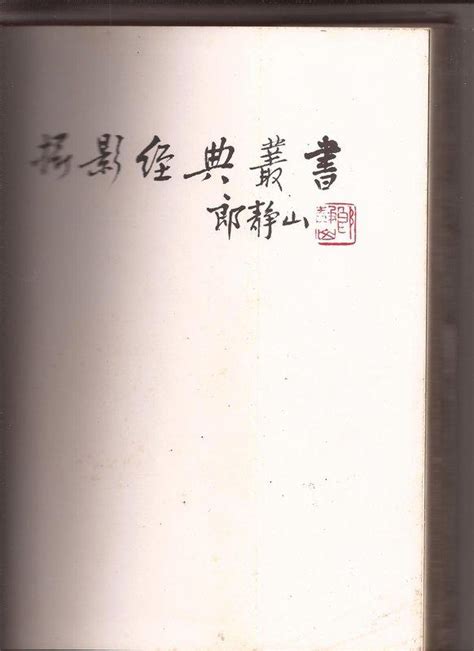 攝影經典叢書
郎靜山
郎靜山